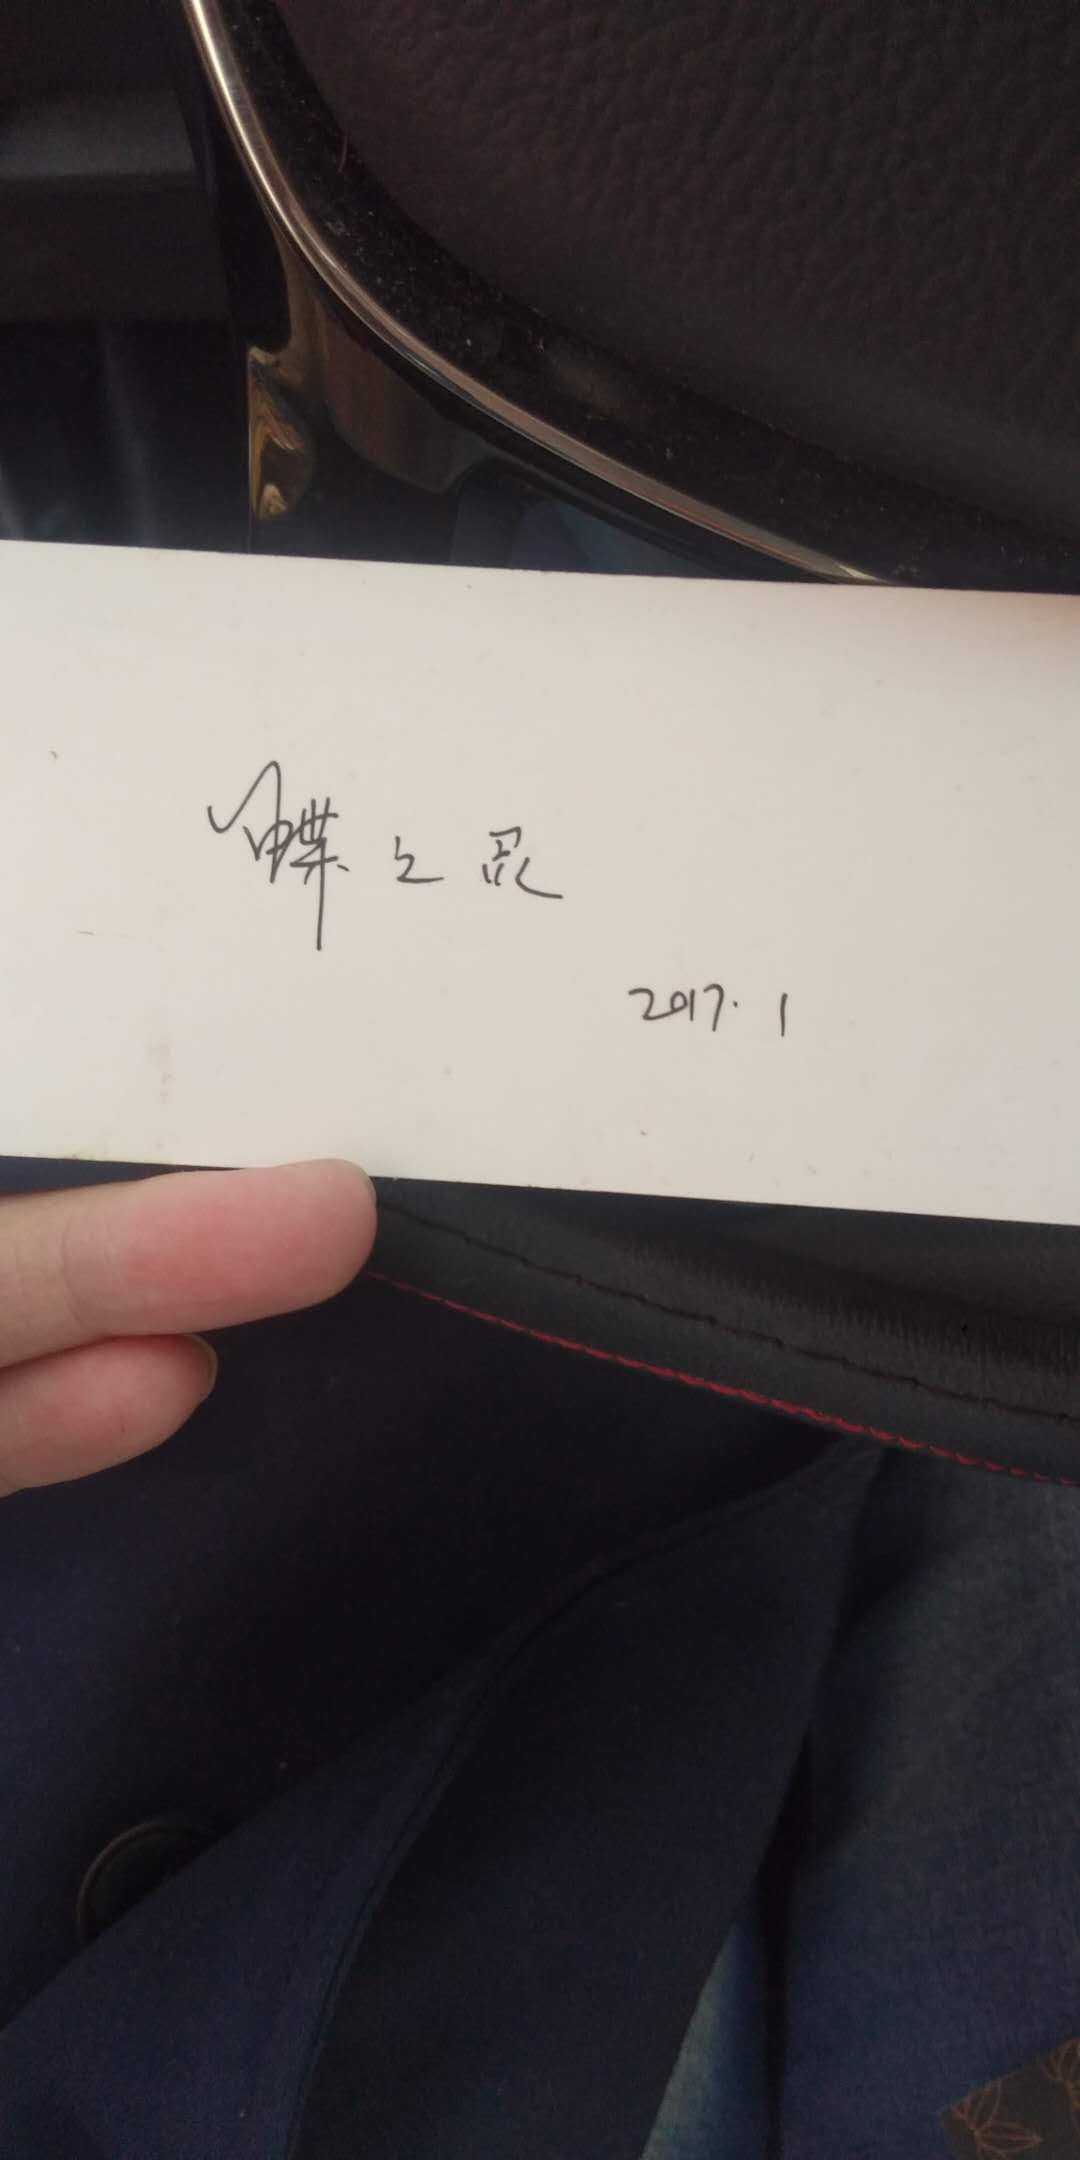 蝶之灵
2017.1